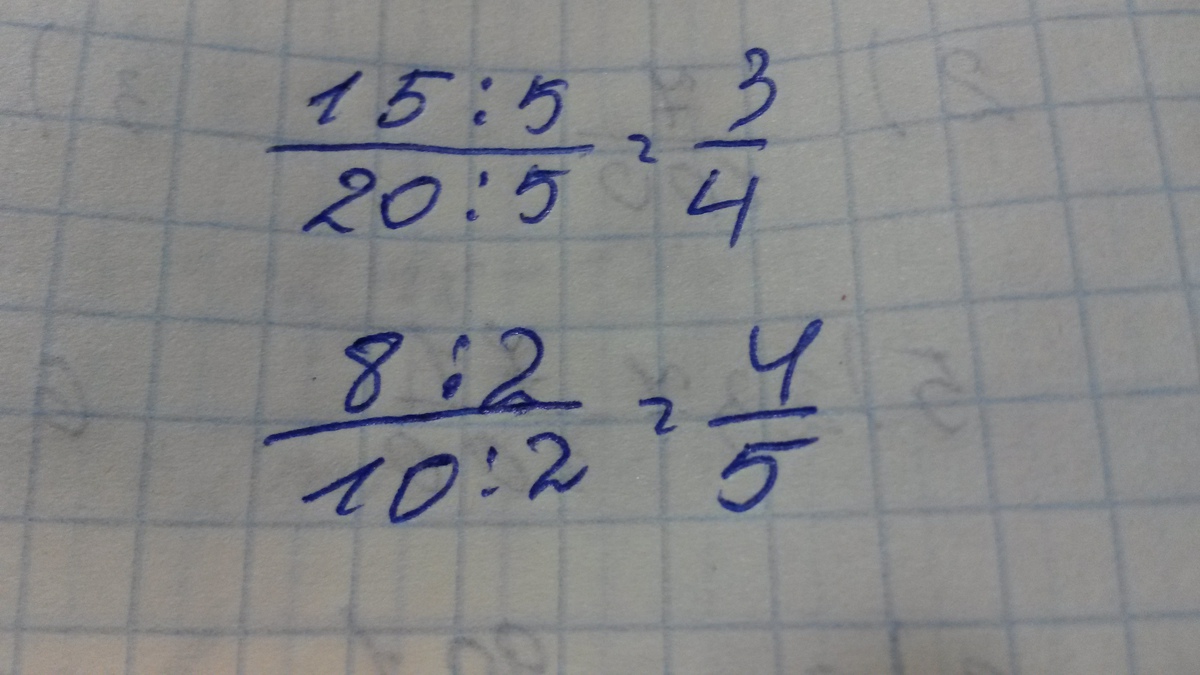 15:5
20:5 = 3
4
8:2
10:2 = 4
5